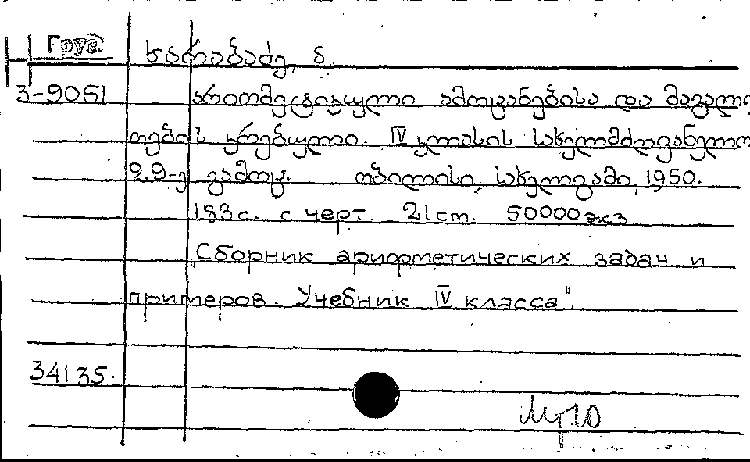 Груз.
ხარაბაძე, ნ.
3-9051
არითმეტიკული ამოცანებისა და მაგალი
თების კრებული. IV კლასის სახელმძღვანელო
29-ე გამოც. თბილისი, სახელგამი, 1950.
183 с. с черт. 21 cm. 50000 экз
"Сборник арифметических задач и
примеров. Учебник IV класса".
34135.